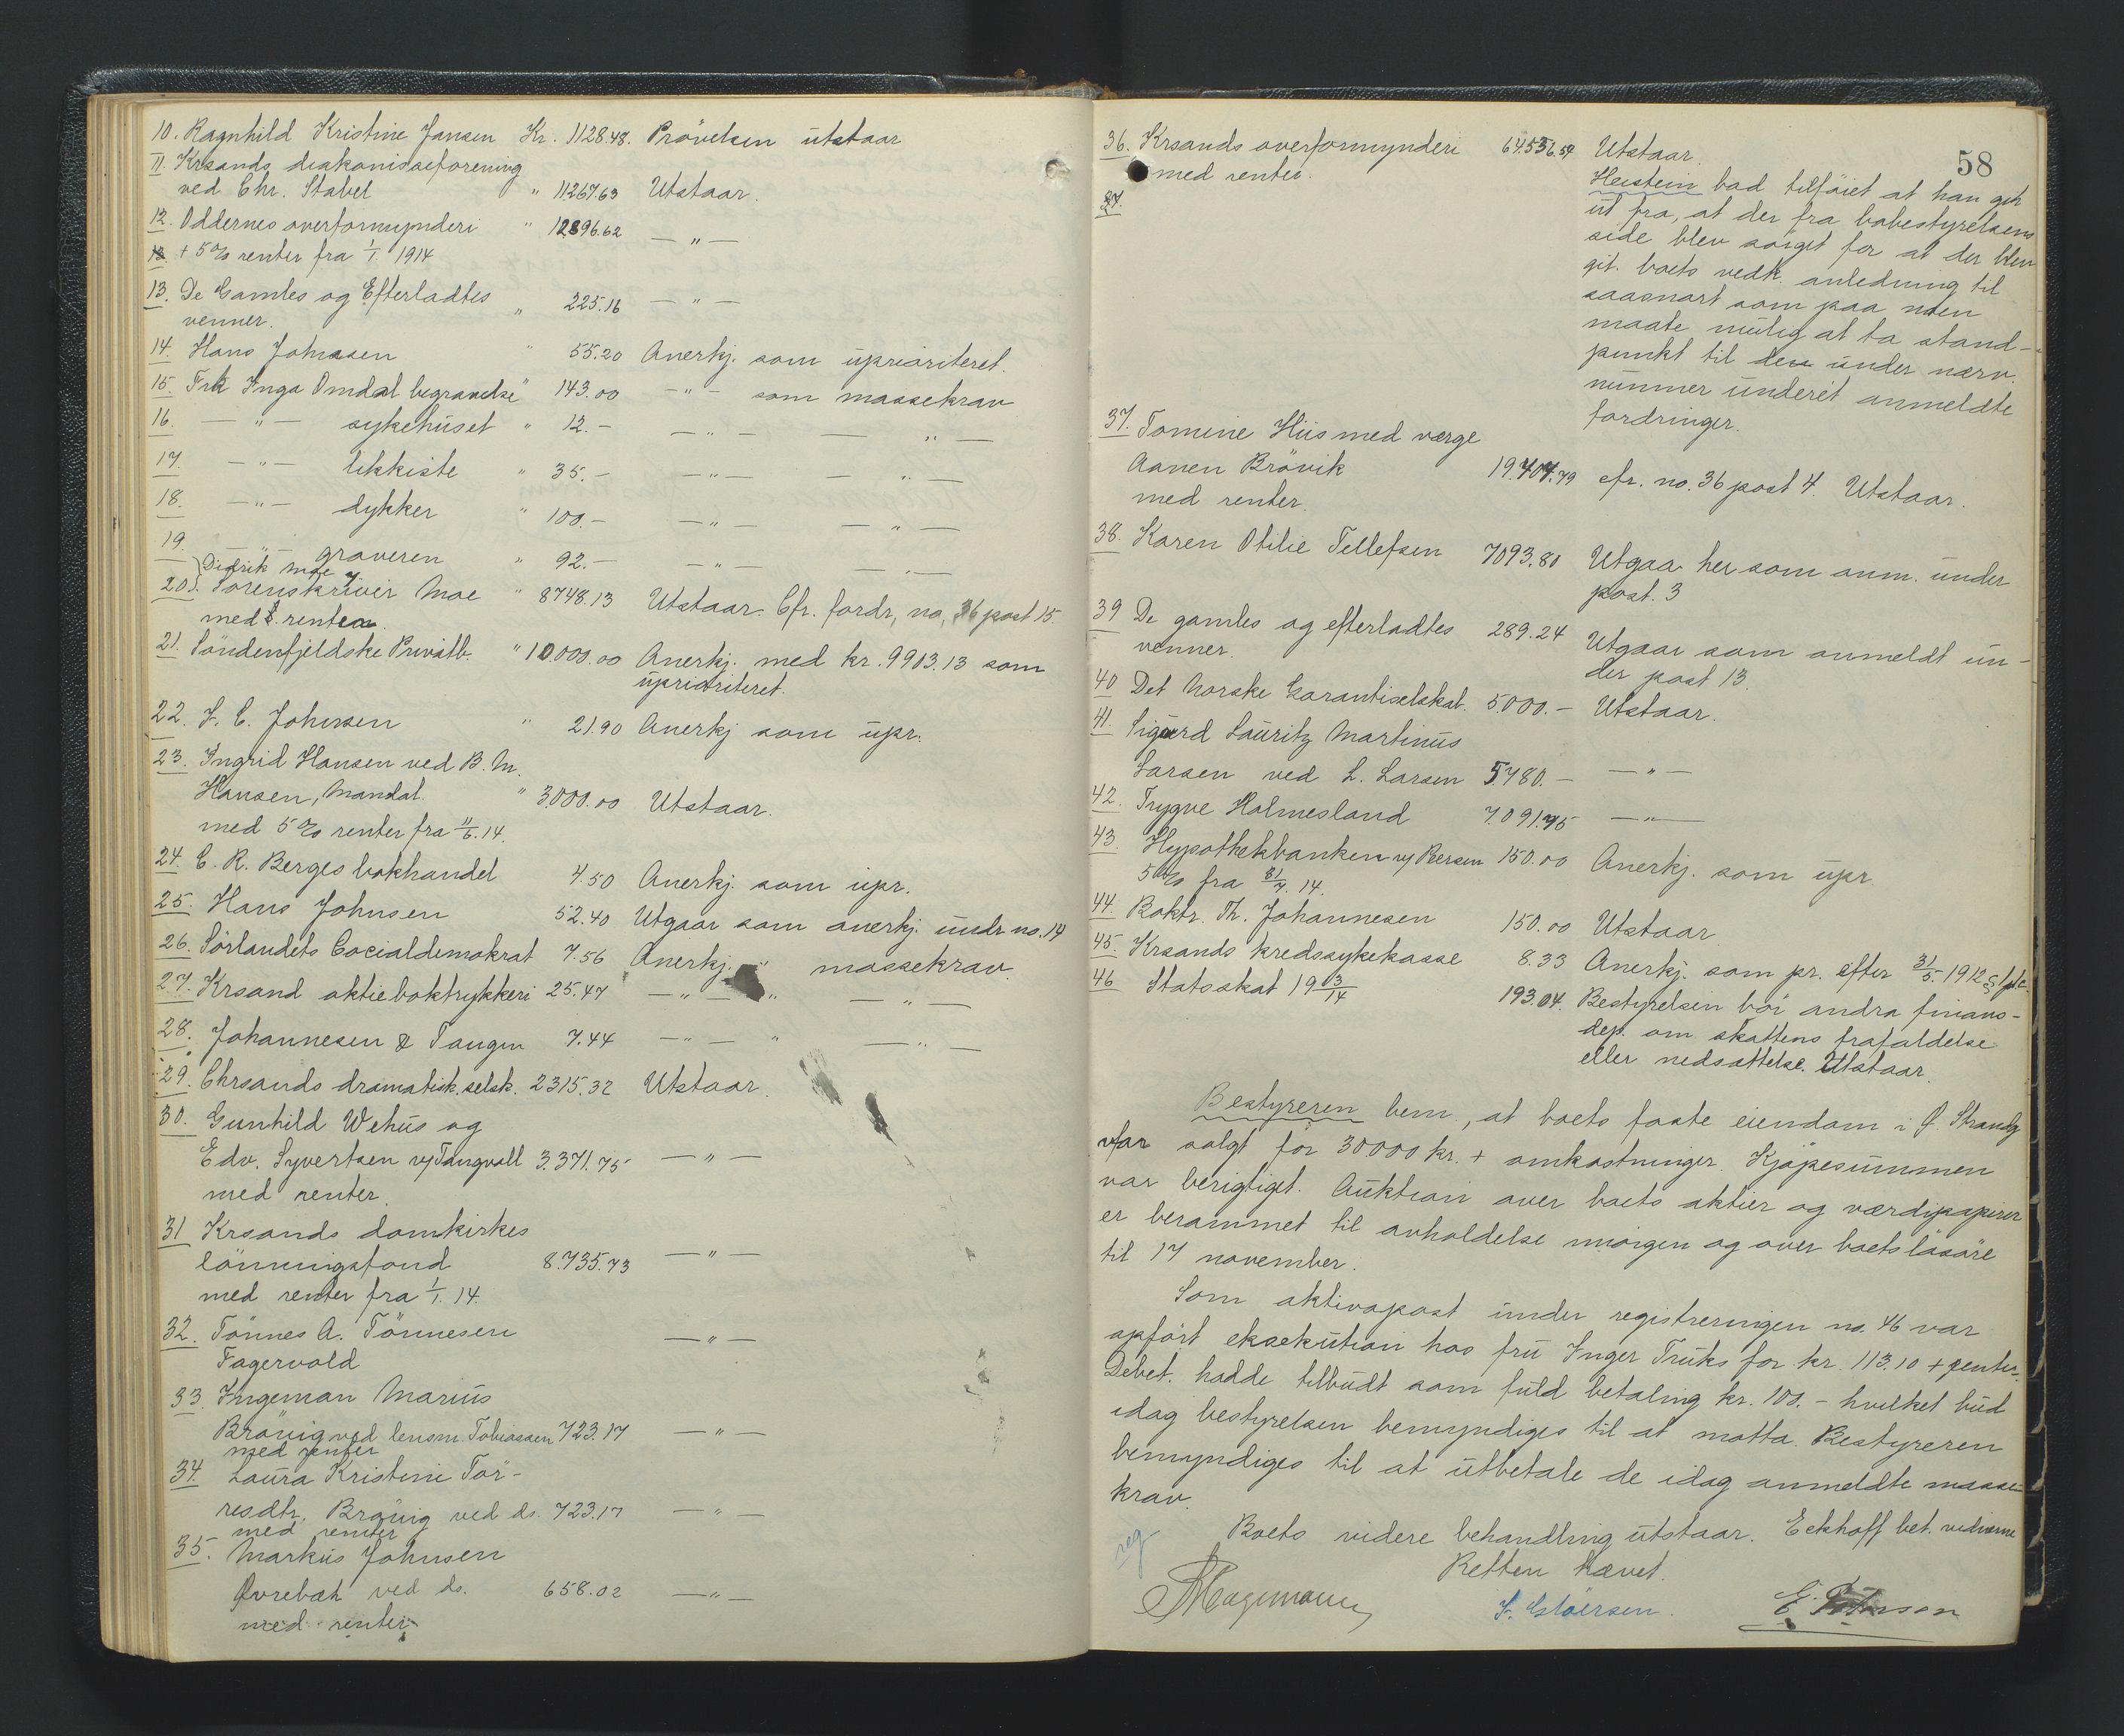 10. Ragnhild Kristine Jansen Kr. 1128.48. Prövelsen utstaar
11. Krsands diakonisseforening
ved Chr. Stabel " 11267.63 Utstaar.
12. Oddernes overformynderi " 12896.62 — " —
+ 5% renter fra 1/1. 1914
13. De Gamles og Efterladtes " 225.16 — " —
venner.
14. Hans Johnsen " 55.20 Anerkj. som uprioriteret.
15. Frk Inga Omdal begravelse " 143.00 — " — som massekrav
16. — " — sykehuset " 12.- — " — — " —
17. — " — likkiste " 35.- — " — — " —
18. — " — dykker " 100.- — " — — " —
19. — " — graveren " 92.- — " — — " —
Didrik Moe
20. Sorenskriver Moe " 8748.13 Utstaar. Cfr. fordr, no, 36 post 15.
med renter
21. Söndenfjeldske Privatb. " 10.000.00 Anerkj. med kr. 9903.13 som
uprioriteret.
22. L. C. Johnsen " 21.90 Anerkj som upr.
23. Ingrid Hansen ved B. M.
Hansen, Mandal. " 3.000.00 Utstaar.
med 5% renter fra 11/6. 14.
24. C. R. Berges bokhandel 4.50 Anerkj. som upr.
25. Hans Johnsen 52.40 Utgaar som anerkj. undr no. 14
26. Sörlandets Cocialdemokrat 7.56 Anerkj. " massekrav
27. Krsand aktieboktrykkeri 25.47 — " — " — " —
28. Johannesen & Tangen 7.44 — " — " — " —
29. Chrsands dramatisk. selsk. 2315.32 Utstaar.
30. Gunhild Wehus og
Edv. Syvertsen v/Tangvall 3.371.75 — " —
med renter.
31 Krsands domkirkes
lönningsfond 8.735.73 — " —
med renter fra 1/1. 14.
32. Tönnes A. Tönnesen — " —
Fagervold
33. Ingeman Marius
Bröuig ved lensm. Tobiassen 723.17 — " —
med renter
34. Laura Kristine Tor-
resdtr. Bröuig ved ds. 723.17 — " —
med renter
35. Markus Johnsen
Øvrebøh ved ds. 658.02 — " —
med renter
58
36. Krsands overformynderi 64.536.54 Utstaar.
med renter.
37.
Heistein bad tilföiet at han gik
ut fra, at der fra bobestyrelsens
side blev sörget for at der blev
git. boets vedk. anledning til
saasnart som paa noen
maate mulig at ta stand-
punkt til de under nærv.
nummer underét anmeldte
fordringer.
37. Tomine Hiis med værge
Aanen Brövik 19.404.79 cfr. no. 36 post 4. Utstaar.
med renter.
38. Karen Otilie Tellefsen 7093.80 Utgaar her som anm. under
post. 3
39 De gamles og efterladtes 289.24 Utgaar som anmeldt un-
venner. der post 13.
40 Det Norske Garantiselskab. 5.000.- Utstaar.
41. Sigurd Lauritz Martinus
Larsen ved L. Larsen 5780.- — " —
42. Trygve Holmesland 7.091.75 — " —
43. Hypothekbanken v/ Reersen 150.00 Anerkj. som upr
5% fra 31/7. 14.
44. Boktr. Th. Johannesen 150.00 Utstaar
45. Krsands kredssykekasse 8.33 Anerkj. som pr. efter 31/5. 1912 §
46 Statsskat 19 13/14 193.04. Bestyrelsen bör andra finans-
dep. om skattens frafaldelse
eller nedsættelse. Utstaar.
Bestyreren bem., at boets faste eiendom i Ø. Strandg
var solgt for 30000 kr. + omkostninger. Kjöpesummen
var berigtiget. Auktion over boets aktier og værdipapirer
er berammet til avholdelse imorgen og over boets lösöre
til 17 november.
Som aktivapost under registreringen no. 46 var
opfört eksekution hos fru Inger Truks for kr. 113.10 + renter.
Debet. hadde tilbudt som fuld betaling kr. 100.- hvilket bud
idag bestyrelsen bemyndiges til at motta. Bestyreren
bemyndiges til at utbetale de idag anmeldte masse-
krav.
Boets videre behandling utstaar. Eckhoff bet. vidnerne
reg Retten hævet.
Hagemann